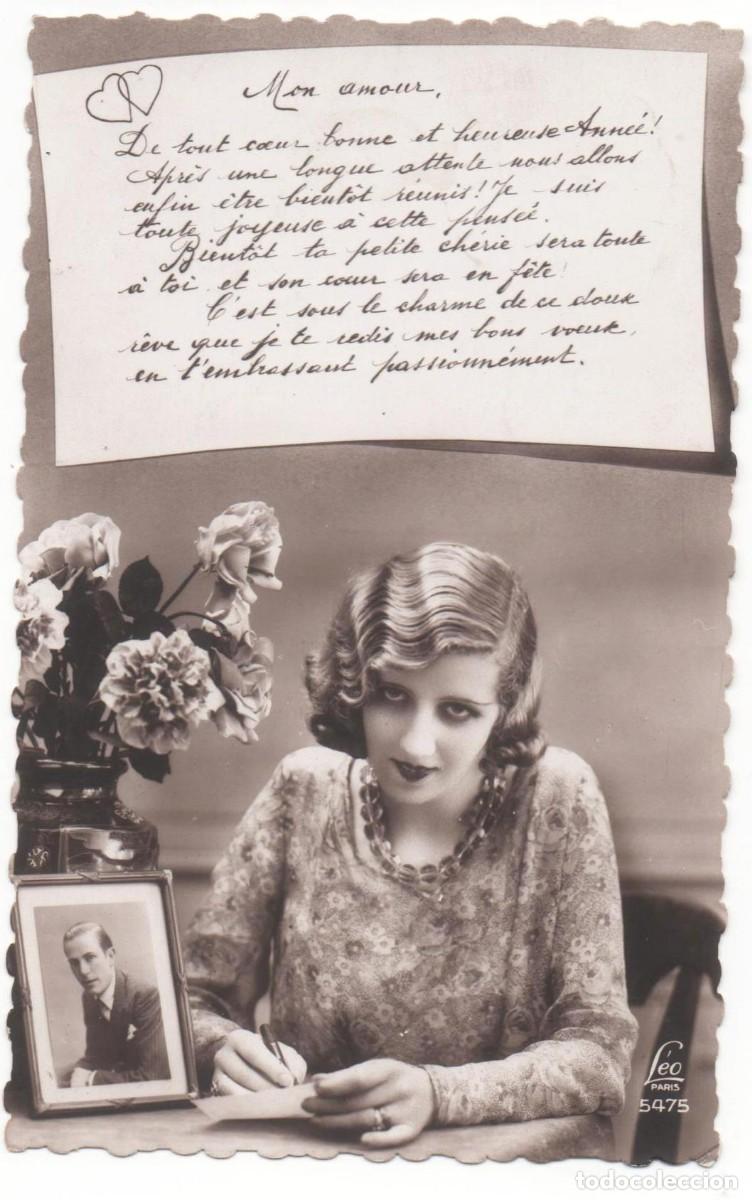 Mon amour,
De tout cœur bonne et heureuse Année!
Après une longue attente nous allons
enfin être bientôt réunis! Je suis
toute joyeuse à cette pensée.
Bientôt ta petite chérie sera toute
à toi et son cœur sera en fête!
C'est sous le charme de ce doux
rêve que je te redis mes bons voeux,
en t'embrassant passionnément.
Léo
PARIS
5475
todocoleccion